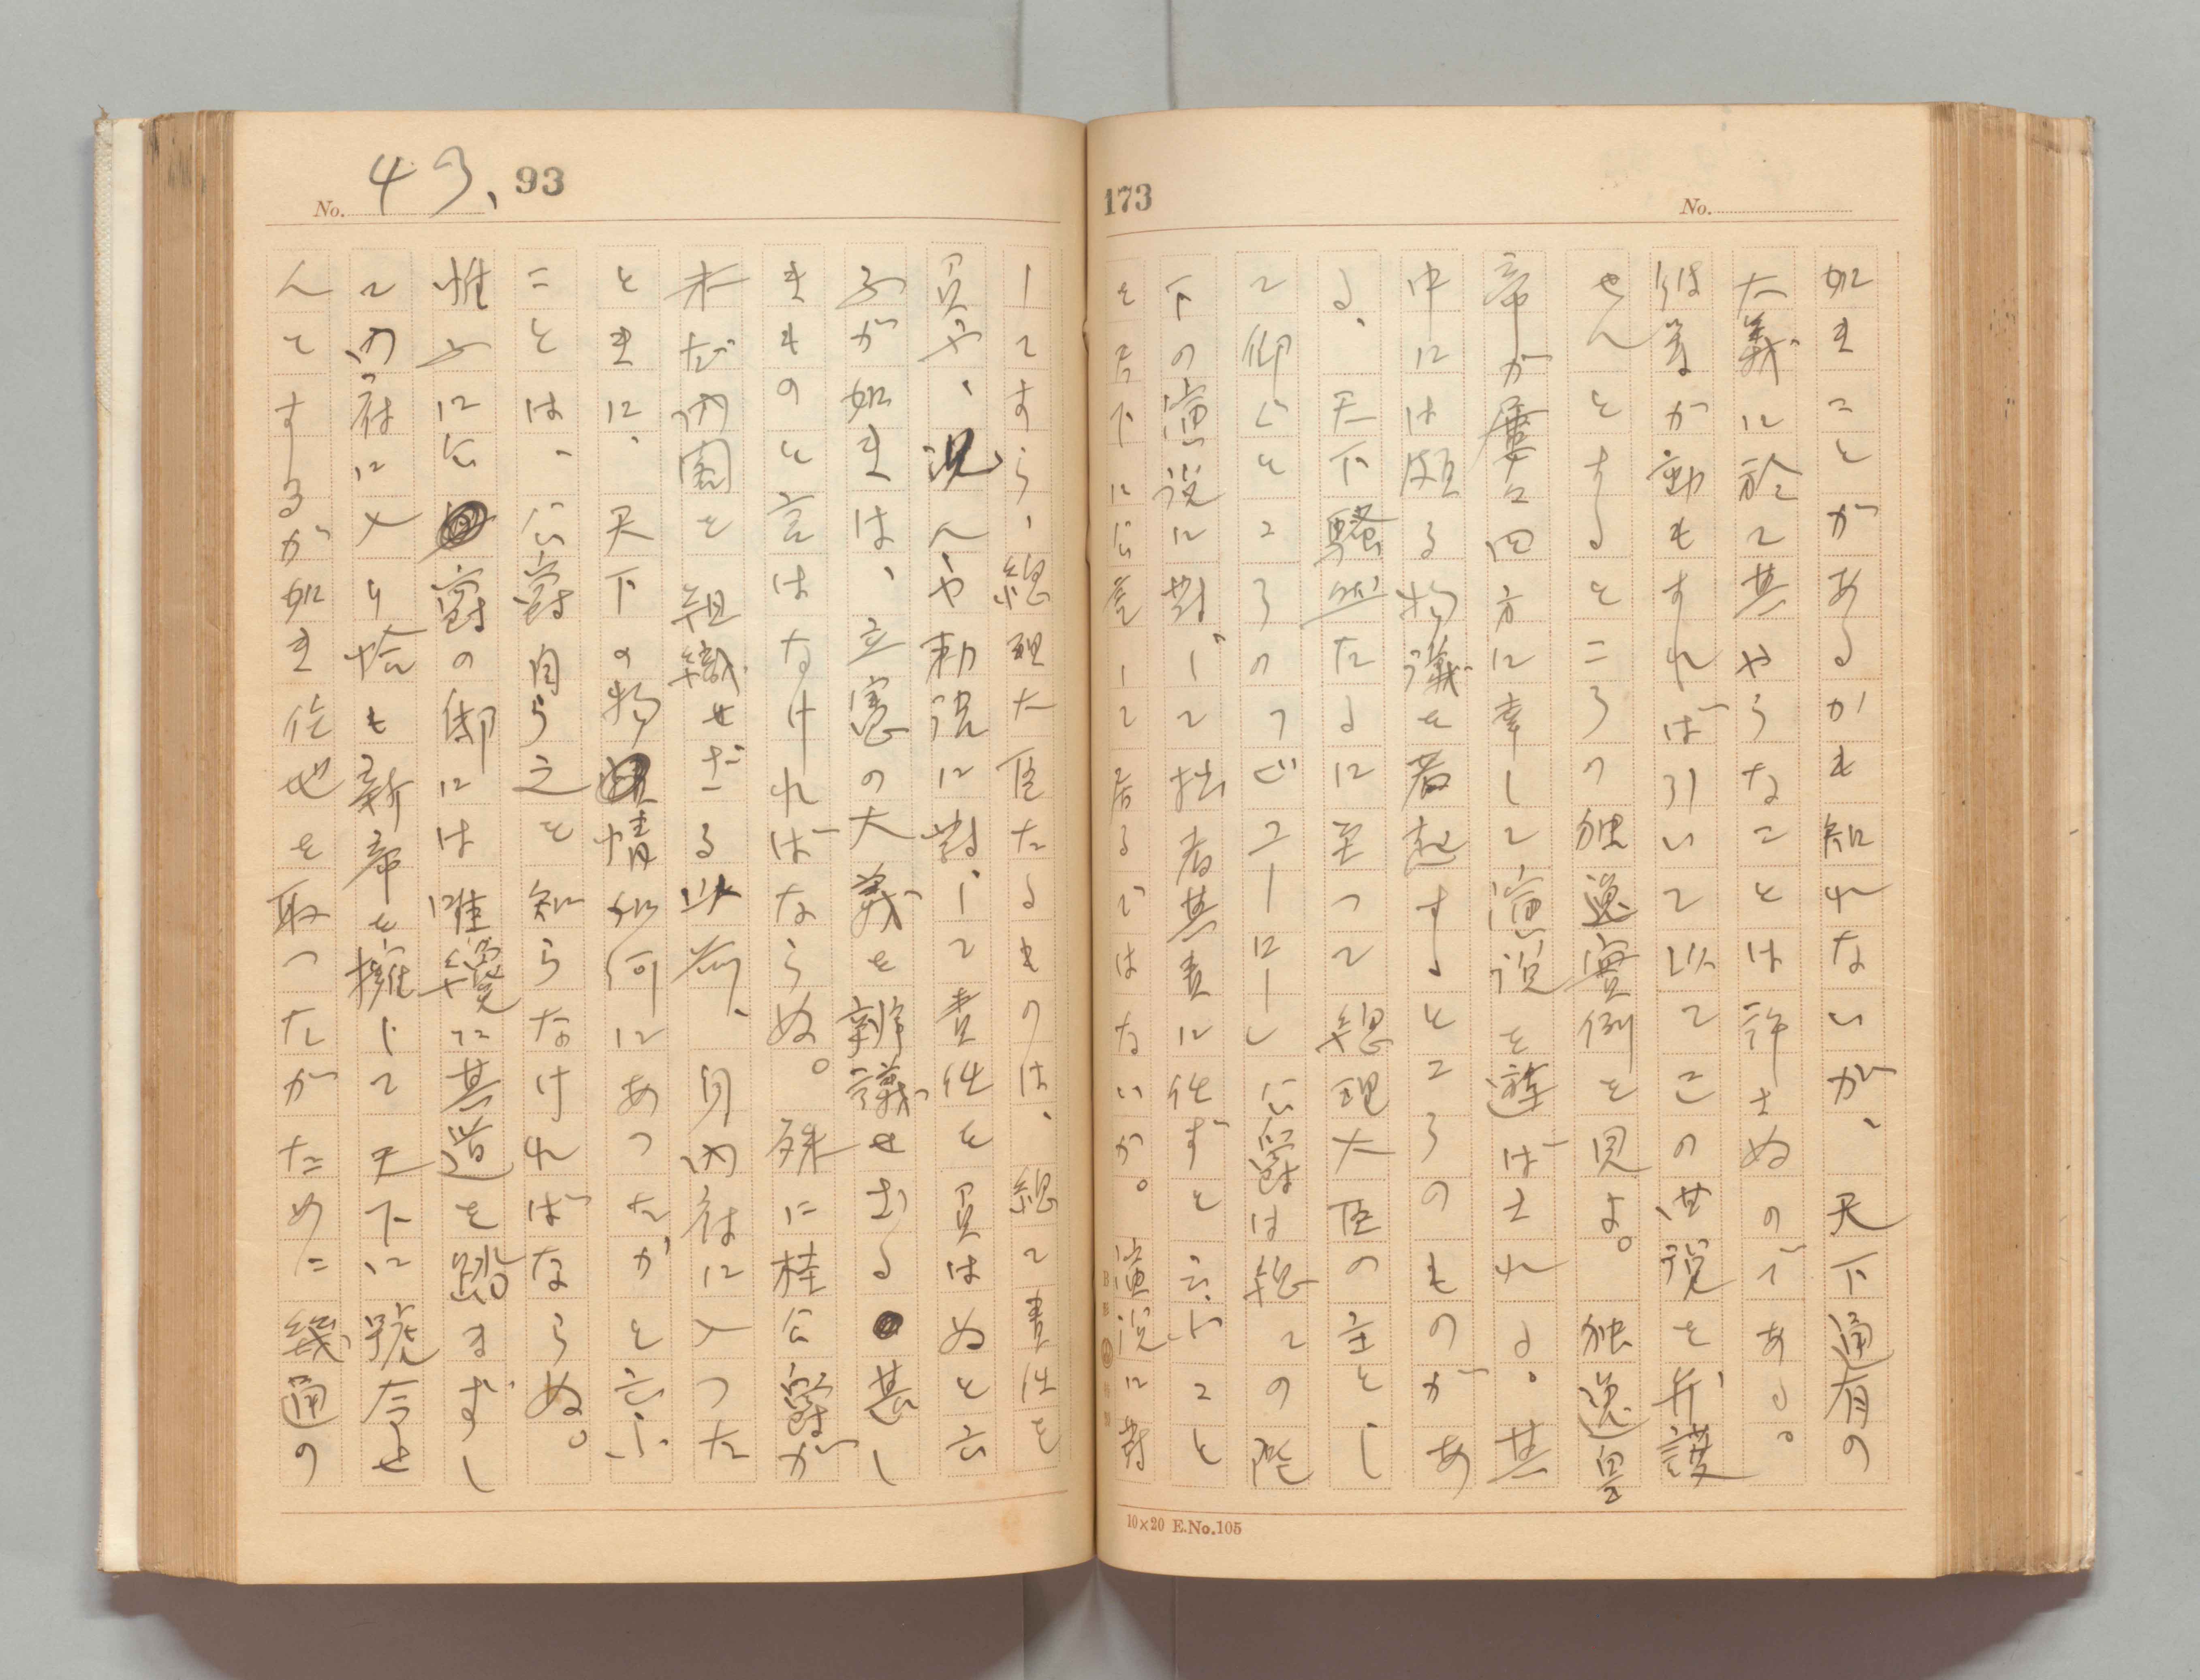 173
No.
如きことがあるかも知れないが、天下通有の
大義に於て其やうなことは許さぬのである。
彼等が動もすれば引いて以てこの世説を弁護
せんとするところの独逸実例を見よ。独逸皇
帝が屡々四方に幸して演説を遊ばされる。其
中には頗る物議を惹起するところのものがあ
る、天下騒然たるに至つて総理大臣の主とし
て仰ぐところのフビユーロー公爵は総ての陛
下の演説に対して拙者其責に任ずと云ふこと
を天下に公言して居るではないか。演説に対
10×20 E.No.105
No. 43、93
してすら、総理大臣たるものは、総て責任を
負や、況んや勅語に対して責任を負はぬと云
ふが如きは、立憲の大義を辨識せざる甚し
きものと言はなければならぬ。殊に桂公爵が
未だ内閣を組織せざる以前、身内府に入つた
ときに、天下の物情如何にあつたかと云ふ
ことは、公爵自ら之を知らなければならぬ。
惟ふに公爵の邸には唯纔に其道を踏まずし
て内府に入り恰も新帝を擁して天下に號令せ
んとするが如き位地を取つたがために幾通の